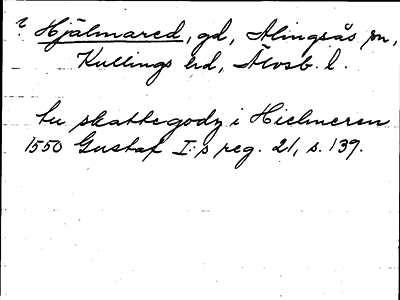 ? Hjälmared, gd, Alingsås sn,
Kullings hd, Älvsb. l.
tu skattegodz i Hielmeren
1550 Gustaf I:s reg. 21, s. 139.